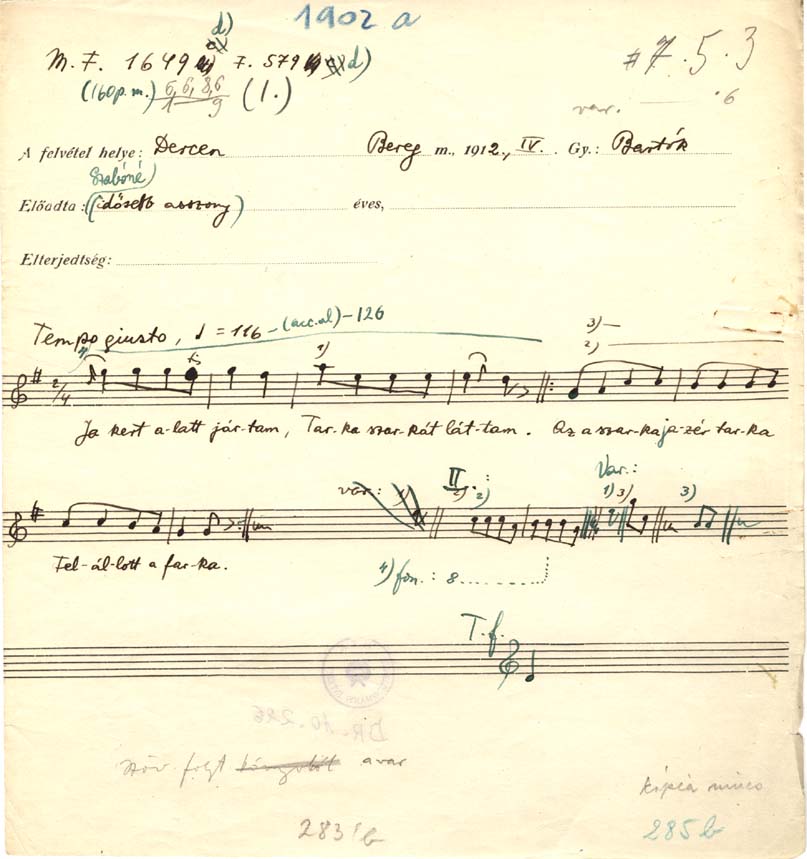 1902 a
d)
M. F. 1649 F. 579 d)
# 7.5.3
(160 p.m.) 6,6,8,6 (1.)
1 9
var. 6
A felvétel helye: Dercen Bereg m., 1912., IV. Gy.: Bartók
Szabóné
Előadta: (idősebb asszony) éves,
Elterjedtség:
Tempo giusto, = 116 - (acc. al) - 126
3)
2)
4) 1)
2/4
Ja kert a-latt jár-tam, Tar-ka szar-kát lát-tam. Az a szar-ka ja-zér tar-ka
var: 1) II. : Var.:
2) 2) 1) 3) 3)
Fel-ál-lott a far-ka.
4) fon.: 8
T. f.
DR. 10.286
szöv. folyt a var
kópia nincs
283/b
285 b